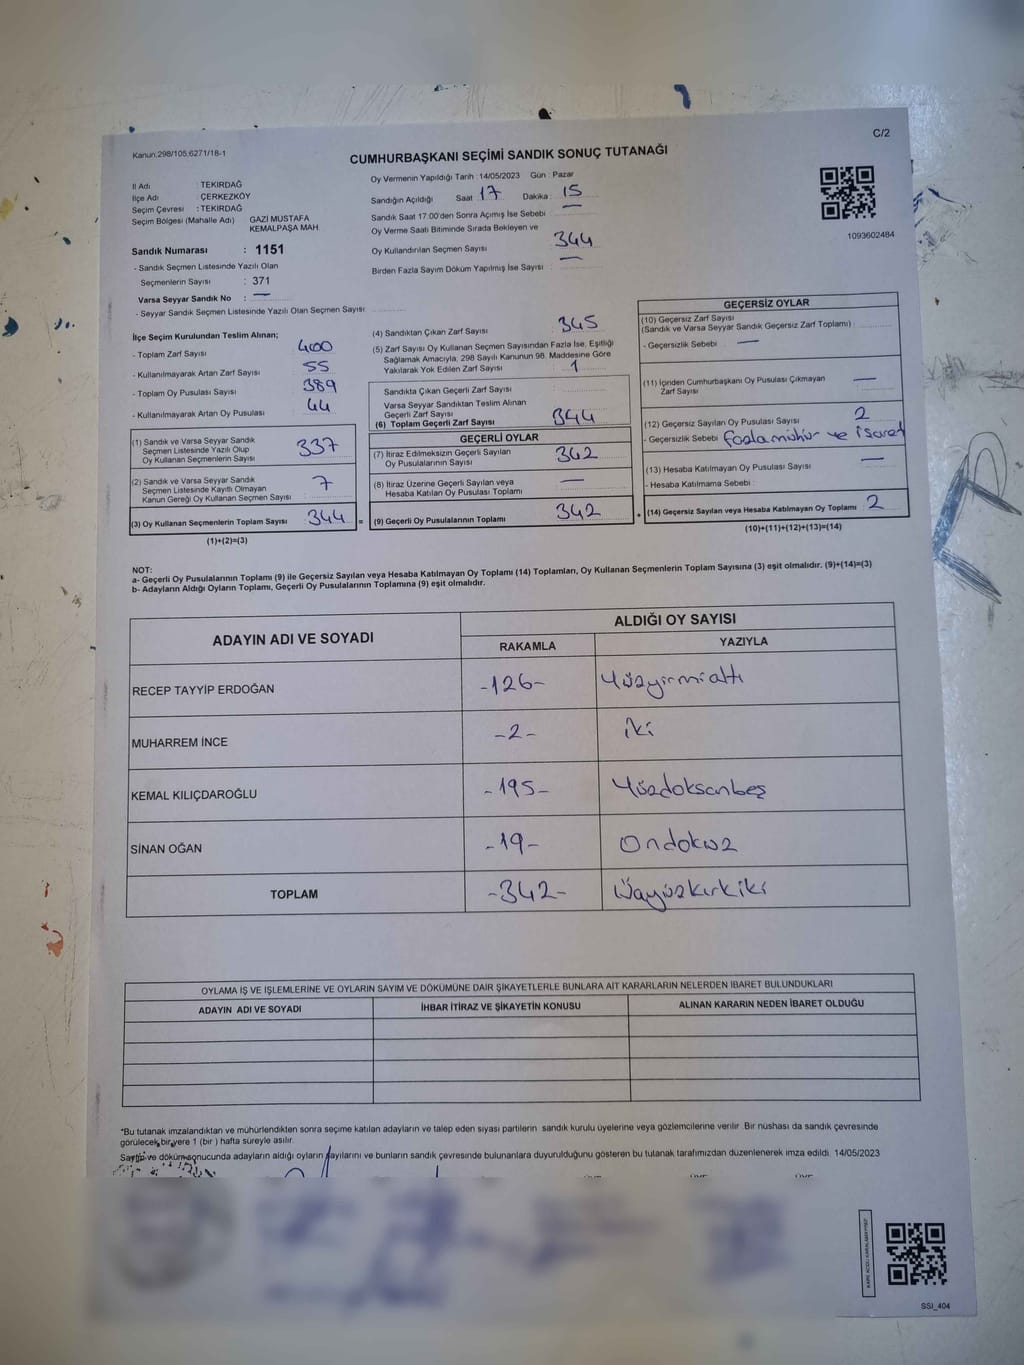 C/2
Kanun.298/105.6271/18-1
CUMHURBAŞKANI SEÇİMİ SANDIK SONUÇ TUTANAĞI
İl Adı : TEKİRDAĞ
İlçe Adı : ÇERKEZKÖY
Seçim Çevresi : TEKİRDAĞ
Seçim Bölgesi (Mahalle Adı) GAZİ MUSTAFA
KEMALPAŞA MAH.
Sandık Numarası : 1151
- Sandık Seçmen Listesinde Yazılı Olan
Seçmenlerin Sayısı : 371
Varsa Seyyar Sandık No : —
- Seyyar Sandık Seçmen Listesinde Yazılı Olan Seçmen Sayısı:
Oy Vermenin Yapıldığı Tarih : 14/05/2023 Gün : Pazar
Sandığın Açıldığı Saat 17 Dakika : 15
Sandık Saat 17:00'den Sonra Açımış İse Sebebi —
Oy Verme Saati Bitiminde Sırada Bekleyen ve
Oy Kullandırılan Seçmen Sayısı 344
Birden Fazla Sayım Döküm Yapılmış İse Sayısı : —
1093602484
İlçe Seçim Kurulundan Teslim Alınan;
- Toplam Zarf Sayısı 400
- Kullanılmayarak Artan Zarf Sayısı 55
- Toplam Oy Pusulası Sayısı 389
- Kullanılmayarak Artan Oy Pusulası 44
(1) Sandık ve Varsa Seyyar Sandık
Seçmen Listesinde Yazılı Olup
Oy Kullanan Seçmenlerin Sayısı 337
(2) Sandık ve Varsa Seyyar Sandık
Seçmen Listesinde Kayıtlı Olmayan
Kanun Gereği Oy Kullanan Seçmen Sayısı 7
(3) Oy Kullanan Seçmenlerin Toplam Sayısı 344 =
(1)+(2)=(3)
(4) Sandıktan Çıkan Zarf Sayısı 345
(5) Zarf Sayısı Oy Kullanan Seçmen Sayısından Fazla İse, Eşitliği
Sağlamak Amacıyla; 298 Sayılı Kanunun 98. Maddesine Göre
Yakılarak Yok Edilen Zarf Sayısı 1
Sandıkta Çıkan Geçerli Zarf Sayısı
Varsa Seyyar Sandıktan Teslim Alınan
Geçerli Zarf Sayısı
(6) Toplam Geçerli Zarf Sayısı 344
GEÇERLİ OYLAR
(7) İtiraz Edilmeksizin Geçerli Sayılan
Oy Pusulalarının Sayısı 342
(8) İtiraz Üzerine Geçerli Sayılan veya
Hesaba Katılan Oy Pusulası Toplamı —
(9) Geçerli Oy Pusulalarının Toplamı 342 +
GEÇERSİZ OYLAR
(10) Geçersiz Zarf Sayısı
(Sandık ve Varsa Seyyar Sandık Geçersiz Zarf Toplamı)
- Geçersizlik Sebebi : —
(11) İçinden Cumhurbaşkanı Oy Pusulası Çıkmayan
Zarf Sayısı —
(12) Geçersiz Sayılan Oy Pusulası Sayısı 2
- Geçersizlik Sebebi fazla mühür ve işaret
(13) Hesaba Katılmayan Oy Pusulası Sayısı —
- Hesaba Katılmama Sebebi :
(14) Geçersiz Sayılan veya Hesaba Katılmayan Oy Toplamı 2
(10)+(11)+(12)+(13)=(14)
NOT:
a- Geçerli Oy Pusulalarının Toplamı (9) ile Geçersiz Sayılan veya Hesaba Katılmayan Oy Toplamı (14) Toplamları, Oy Kullanan Seçmenlerin Toplam Sayısına (3) eşit olmalıdır. (9)+(14)=(3)
b- Adayların Aldığı Oyların Toplamı, Geçerli Oy Pusulalarının Toplamına (9) eşit olmalıdır.
ADAYIN ADI VE SOYADI ALDIĞI OY SAYISI
RAKAMLA YAZIYLA
RECEP TAYYİP ERDOĞAN -126- Yüzyirmialtı
MUHARREM İNCE -2- iki
KEMAL KILIÇDAROĞLU -195- Yüzdoksanbeş
SİNAN OĞAN -19- Ondokuz
TOPLAM -342- Üçyüzkırkiki
OYLAMA İŞ VE İŞLEMLERİNE VE OYLARIN SAYIM VE DÖKÜMÜNE DAİR ŞİKAYETLERLE BUNLARA AİT KARARLARIN NELERDEN İBARET BULUNDUKLARI
ADAYIN ADI VE SOYADI İHBAR İTİRAZ VE ŞİKAYETİN KONUSU ALINAN KARARIN NEDEN İBARET OLDUĞU
*Bu tutanak imzalandıktan ve mühürlendikten sonra seçime katılan adayların ve talep eden siyasi partilerin sandık kurulu üyelerine veya gözlemcilerine verilir. Bir nüshası da sandık çevresinde
görülecek bir yere 1 (bir ) hafta süreyle asılır.
Sayım ve döküm sonucunda adayların aldığı oyların sayılarını ve bunların sandık çevresinde bulunanlara duyurulduğunu gösteren bu tutanak tarafımızdan düzenlenerek imza edildi. 14/05/2023
SSI_404